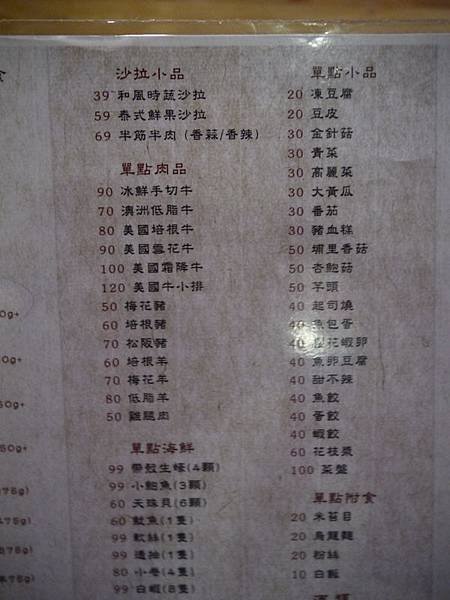 食
0g+
0g+
50g+
50g+
75g)
475g)
575g)
475g)
沙拉小品
39 和風時蔬沙拉
59 泰式鮮果沙拉
69 半筋半肉 (香蒜/香辣)
單點肉品
90 冰鮮手切牛
70 澳洲低脂牛
80 美國培根牛
90 美國雪花牛
100 美國霜降牛
120 美國牛小排
50 梅花豬
60 培根豬
70 松阪豬
60 培根羊
70 梅花羊
80 低脂羊
50 雞腿肉
單點海鮮
99 帶殼生蠔(4顆)
99 小鮑魚(3顆)
60 天珠貝(6顆)
60 魷魚(1隻)
99 軟絲(1隻)
99 透抽(1隻)
80 小卷(4隻)
99 白蝦(8隻)
單點小品
20 凍豆腐
20 豆皮
30 金針菇
30 青菜
30 高麗菜
30 大黃瓜
30 番茄
30 豬血糕
50 埔里香菇
50 杏鮑菇
50 芋頭
40 起司燒
40 魚包蛋
40 蝦卵
40 魚卵豆腐
40 甜不辣
40 魚餃
40 蛋餃
40 蝦餃
60 花枝漿
100 菜盤
單點附食
20 米苔目
20 烏龍麵
20 粉絲
10 白飯
酒類